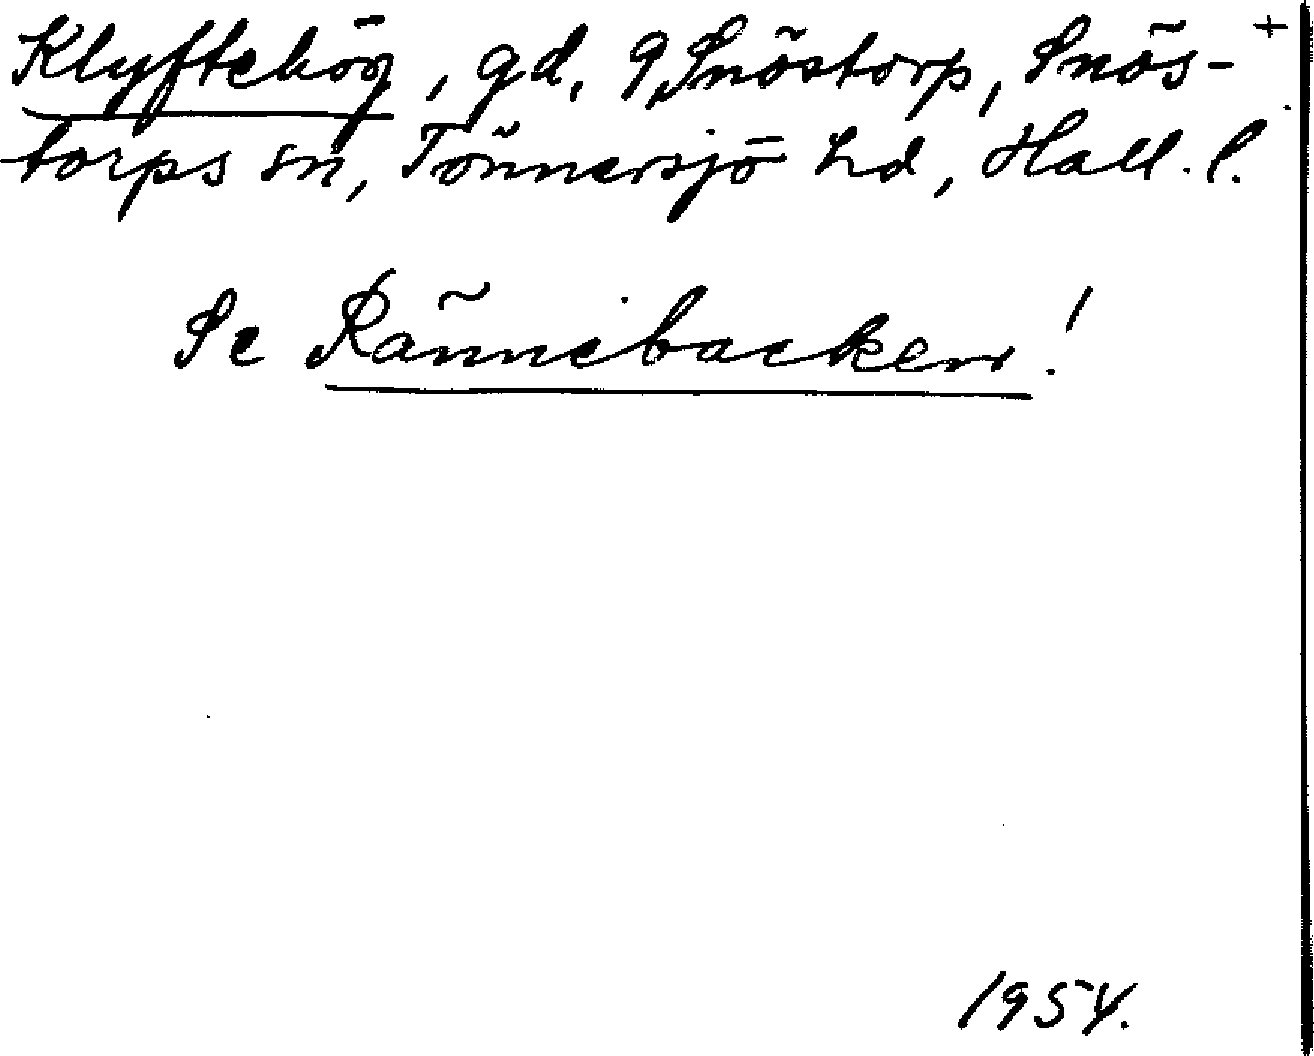 Klyftehög, gd, 9 Snöstorp, Snös- +
torps sn, Tönnersjö hd, Hall. l.
Se Rännebacken!
1954.